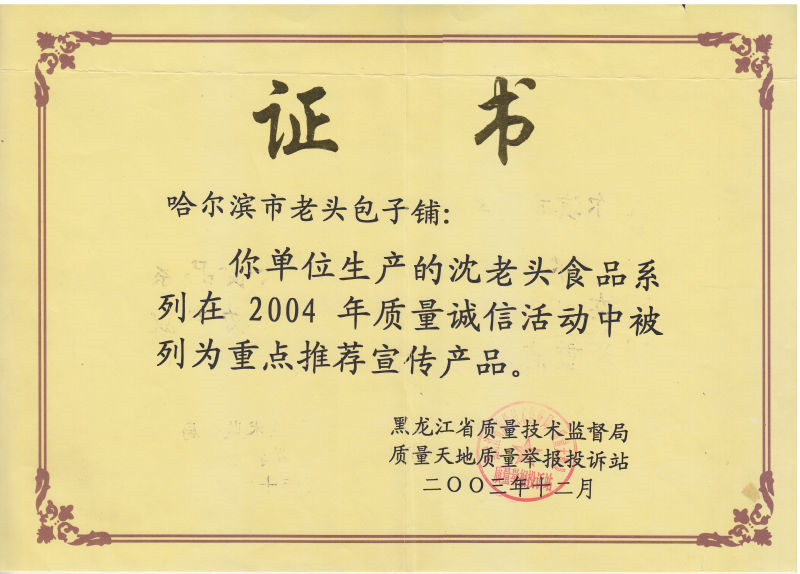 证 书
哈尔滨市老头包子铺:
你单位生产的沈老头食品系
列在 2004 年质量诚信活动中被
列为重点推荐宣传产品。
黑龙江省质量技术监督局
质量天地质量举报投诉站
二〇〇三年十二月